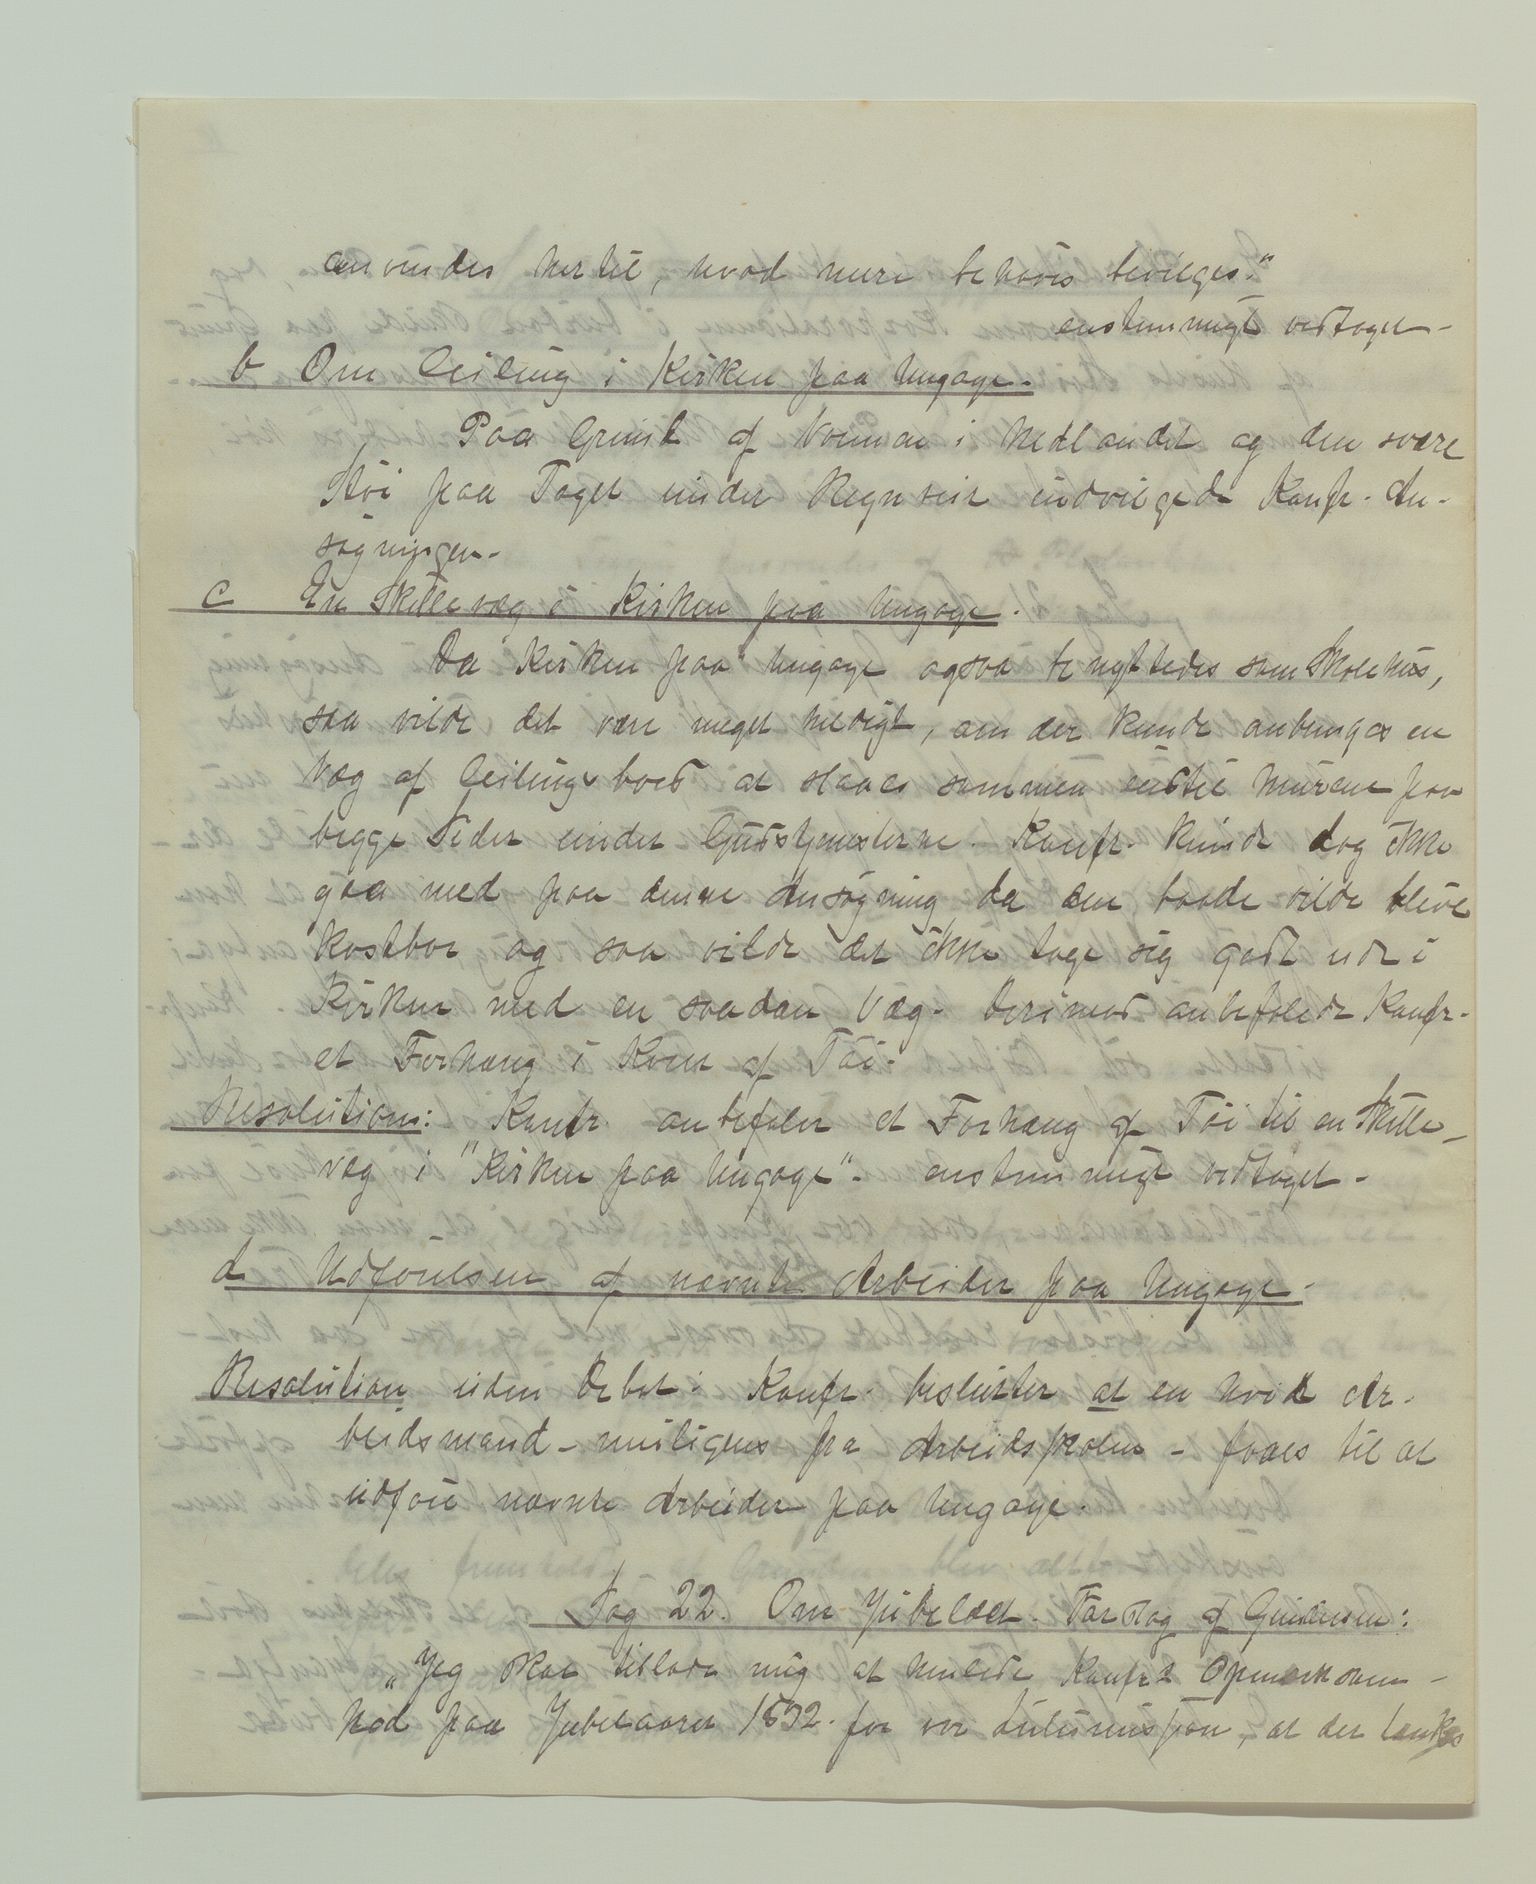 anvendes hertil, hvad mere behøves bevilges."
enstemmigt vedtaget-
b Om Ceiling i Kirken paa Ungoye.
Paa Grund af Varmen i Nedlandet og den svære
Støi paa Taget under Regnveir indvilgede Konfr. An-
søgningen.
c En Skillevæg i Kirken paa Ungoye.
Da Kirken paa Ungoye ogsaa benyttedes som Skolehus,
saa vilde det være meget heldigt, om der kunde anbringes en
Væg af Ceilingsbord at slaaes sammen indtil Murene paa
begge Sider under Gudstjenesterne. Konfr. kunde dog ikke
gaa med paa denne Ansøgning da den baade vilde blive
kostbar og saa vilde det ikke tage sig godt ud i
Kirken med en saadan Væg. Derimod anbefalede Konfr.
et Forhæng i Kom af Tøi.
Resolution: Konfr. anbefaler et Forhæng af Tøi til en Skille-
væg i "Kirken paa Ungoye". enstemmigt vedtaget.
d Udførelsen af nævnte Arbeider paa Ungoye.
Resolution uden Debat. Konfr. beslutter at en hvid Ar-
beidsmand - muligens fra Arbeidsskolen - faaes til at
udføre nævnte Arbeider paa Ungoye.
Sag 22. Om Jubelæet. Fordrag af Gundersen:
„Jeg skal tillade mig at henlede Konfr.s Opmerksom-
hed paa Jubelaaret 1892. for vor Zulumission, at der tænkes